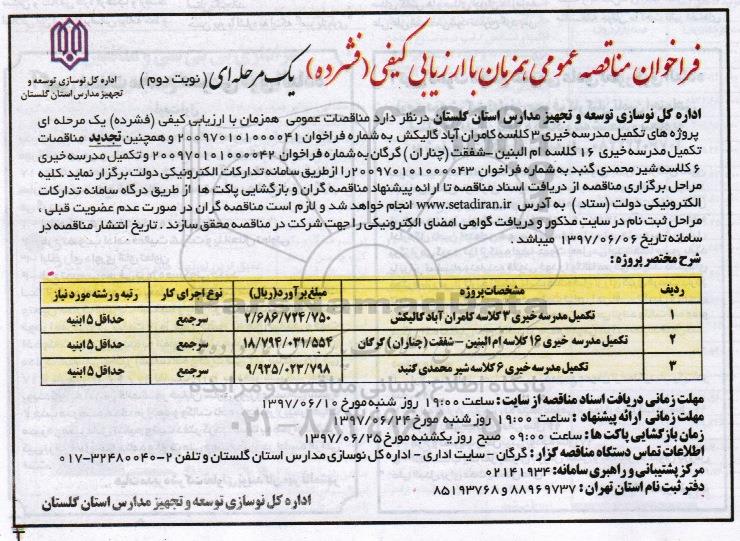 فراخوان مناقصه عمومی همزمان با ارزیابی کیفی (فشرده) یک مرحله ای (نوبت دوم)
اداره کل نوسازی توسعه و
تجهیز مدارس استان گلستان
اداره کل نوسازی توسعه و تجهیز مدارس استان گلستان درنظر دارد مناقصات عمومی همزمان با ارزیابی کیفی (فشرده) یک مرحله ای
پروژه های تکمیل مدرسه خیری ۳ کلاسه کامران آباد گالیکش به شماره فراخوان ۲۰۰۹۷۰۱۰۱۰۰۰۰۴۱ و همچنین تجدید مناقصات
تکمیل مدرسه خیری ۱۶ کلاسه ام البنین –شفقت (چناران) گرگان به شماره فراخوان ۲۰۰۹۷۰۱۰۱۰۰۰۰۴۲ و تکمیل مدرسه خیری
۶ کلاسه شیر محمدی گنبد به شماره فراخوان ۲۰۰۹۷۰۱۰۱۰۰۰۰۴۳ را ازطریق سامانه تدارکات الکترونیکی دولت برگزار نماید .کلیه
مراحل برگزاری مناقصه از دریافت اسناد مناقصه تا ارائه پیشنهاد مناقصه گران و بازگشایی پاکت ها از طریق درگاه سامانه تدارکات
الکترونیکی دولت (ستاد ) به آدرس www.setadiran.ir انجام خواهد شد و لازم است مناقصه گران در صورت عدم عضویت قبلی ،
مراحل ثبت نام در سایت مذکور و دریافت گواهی امضای الکترونیکی را جهت شرکت در مناقصه محقق سازند . تاریخ انتشار مناقصه در
سامانه تاریخ ۱۳۹۷/۰۶/۰۶ میباشد .
شرح مختصر پروژه :
ردیف مشخصات پروژه مبلغ برآورد(ریال) نوع اجرای کار رتبه و رشته مورد نیاز
۱ تکمیل مدرسه خیری ۳ کلاسه کامران آباد گالیکش ۲/۶۸۶/۷۲۴/۷۵۰ سرجمع حداقل ۵ ابنیه
۲ تکمیل مدرسه خیری ۱۶ کلاسه ام البنین – شفقت (چناران) گرگان ۱۸/۷۹۴/۰۳۱/۵۵۴ سرجمع حداقل ۵ ابنیه
۳ تکمیل مدرسه خیری ۶ کلاسه شیر محمدی گنبد ۹/۹۳۵/۰۲۳/۷۹۸ سرجمع حداقل ۵ ابنیه
مهلت زمانی دریافت اسناد مناقصه از سایت : ساعت ۱۹:۰۰ روز شنبه مورخ ۱۳۹۷/۰۶/۱۰
مهلت زمانی ارائه پیشنهاد : ساعت ۱۹:۰۰ روز شنبه مورخ ۱۳۹۷/۰۶/۲۴
زمان بازگشایی پاکت ها : ساعت ۰۹:۰۰ صبح روز یکشنبه مورخ ۱۳۹۷/۰۶/۲۵
اطلاعات تماس دستگاه مناقصه گزار : گرگان – سایت اداری – اداره کل نوسازی مدارس استان گلستان و تلفن ۲-۳۲۴۸۰۰۴۰-۰۱۷
مرکز پشتیبانی و راهبری سامانه: ۰۲۱۴۱۹۳۴
دفتر ثبت نام استان تهران : ۸۸۹۶۹۷۳۷ و ۸۵۱۹۳۷۶۸
اداره کل نوسازی توسعه و تجهیز مدارس استان گلستان